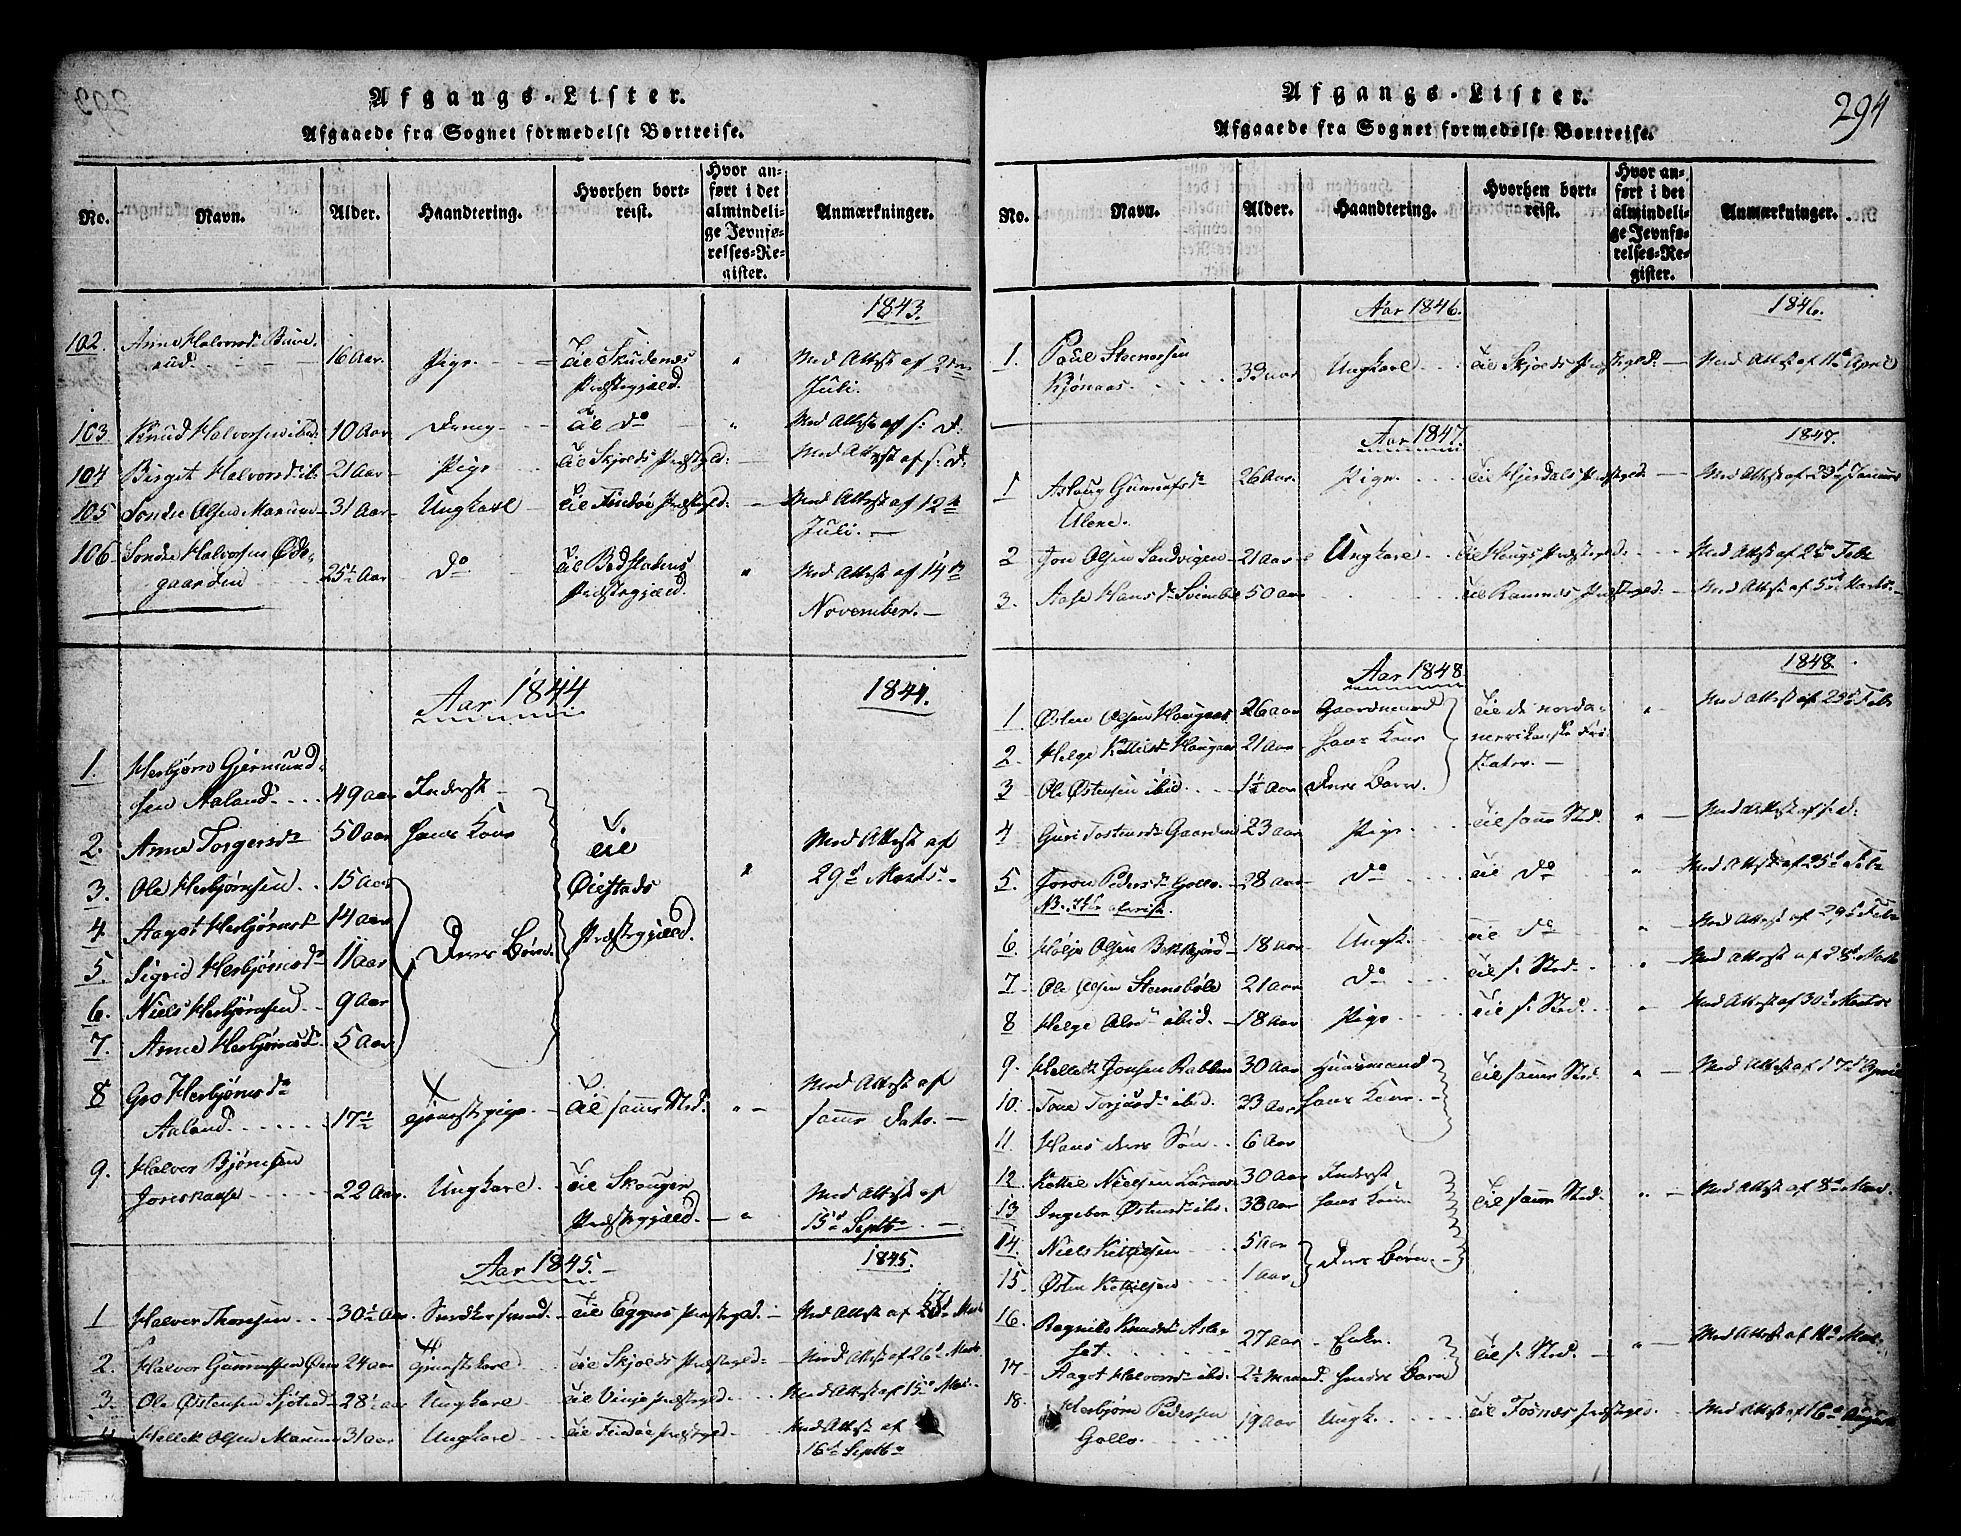 Afgangs-Lister.
Afgaaede fra Sognet formedelst Bortreise.
No. Navn. Alder. Haandtering. Hvorhen bortreist. Hvor anført i det almindelige Jevnførelses-Register. Anmærkninger.
1843.
102. Anne Halvorsd. 16 Aar Pige til Skudenes Præstegjæld. " Med Attest af 2den Juli.
103 Knud Halvorsen ibid. 10 Aar Dreng til do " Med Attest af s: D.
104 Birget Halvorsd. ib. 21 Aar Pige til Skjolds Præstegjeld. Med Attest af s: D.
105 Sondre Olsen Marum 31 Aar Ungkarl til Findöe Præstegjeld. Med Attest af 12te Juli.
106 Sondre Halvorsen Ødegaarden 25½ Aar do til Præstegjæld. " Med Attest af 14de November.
Aar 1844 1844.
1. Herbjørn Gjermundsen Aaland 49 aar Inderst
2. Anne Torgersdr 50 aar hans Kone
3. Ole Herbjørnsen 15 aar
4. Aagot Herbjørnsd 14 aar
5. Sigrid Herbjørnsdr 11 aar Deres Børn
6. Niels Herbjørnsen 9 aar
7. Anne Herbjørnsd. 5 Aar
til Øiestads Præstegjæld. " Med Attest af 29d Marts.
8 Gro Herbjørnsdr Aaland 17½ Tjenestepige til samme Sted. " Med Attest af samme Dato.
9. Halvor Bjørnsen 22 Aar. Ungkarl. til Skouger Præstegjæld. " Med Attest af 15d Septbr
Aar 1845. 1845.
1 Halvor Thorsen 30½ Aar. til Præstegjeld. Med Attest af Marts
2. Halvor Gunnufsen 24 aar Tjenestekarl til Skjolds Præstegjeld. Med Attest af 26d Marts.
3. Ole Østensen 28½ aar Ungkarl til Vinje Præstegjeld. Med Attest af 15d Mai.
4 Hellek Olsen Marum 31 aar Ungkarl til Findöe Præstegjeld. Med Attest af 16d Septbr
Afgangs-Lister.
294
Afgaaede fra Sognet formedelst Bortreise.
No. Navn. Alder. Haandtering. Hvorhen bortreist. Hvor anført i det almindelige Jevnførelses-Register. Anmærkninger.
Aar 1846. 1846.
1. Poul Steenersen Kjönaas 33 aar Ungkarl til Skjolds Præstegjeld. Med Attest af 11te April
Aar 1847. 1847.
1 Aslaug Gunnufsdr 26 Aar. Pige til Hjerdals Præstegjeld Med Attest af 23d Januar
2 Jon Olsen Sandvigen 21 Aar Ungkarl til Præstegjeld. Med Attest af Febr
3. Aase Hansdr 50 aar til Ramnes Præstegjeld. Med Attest af 5d Marts.
Aar 1848 1848.
1 Østen Olsen Haugaas 26 aar Gaardmand til de nordamerikanske Fristater. " Med Attest af Febr
2. Helge Kittilsd. Haugaas 21 Aar hans Kone
3 Ole Østensen ibid. 1½ Aar Deres Barn.
4 Guri Tostensdr Gaarden 23 aar Pige til samme Sted. " Med Attest af s: D.
5. Joron Pedersdr Gollo 28 Aar do til do " Med Attest af 25d Febr
6. Olsen 18 aar Ungk. til do " Med Attest af 29d Febr
7 Ole Olsen Steensböle 21 aar do til s. Sted. " Med Attest af 28d Marts
8 Helge Olsdr ibid. 18 Aar Pige til s. Sted. " Med Attest af 30d Marts
9. Hellek Jonsen 30 Aar Huusmand til samme Sted " Med Attest af 17d April
10. Tone Torjusdr ibid. 33 Aar hans Kone
11. Hans deres Søn 6 Aar
12. Kittil Nielsen 30 Aar Inderst til samme Sted. " Med Attest af 8d Mai.
13 Ingebor Østensdr ibid. 38 Aar hans Kone
14. Niels Kittilsen 5 Aar Deres Børn
15 Østen Kittilsen 1 aar
16. Ragnild Knudsd. 27 aar Enke til s. Sted. " Med Attest af Mai
17 Aagot Halvorsdr ibid. 2½ Maaned hendes Barn
18. Herbjørn Pedersen Gollo 19 aar Ungk. til Fosnæs Præstegjeld. Med Attest af 16de August